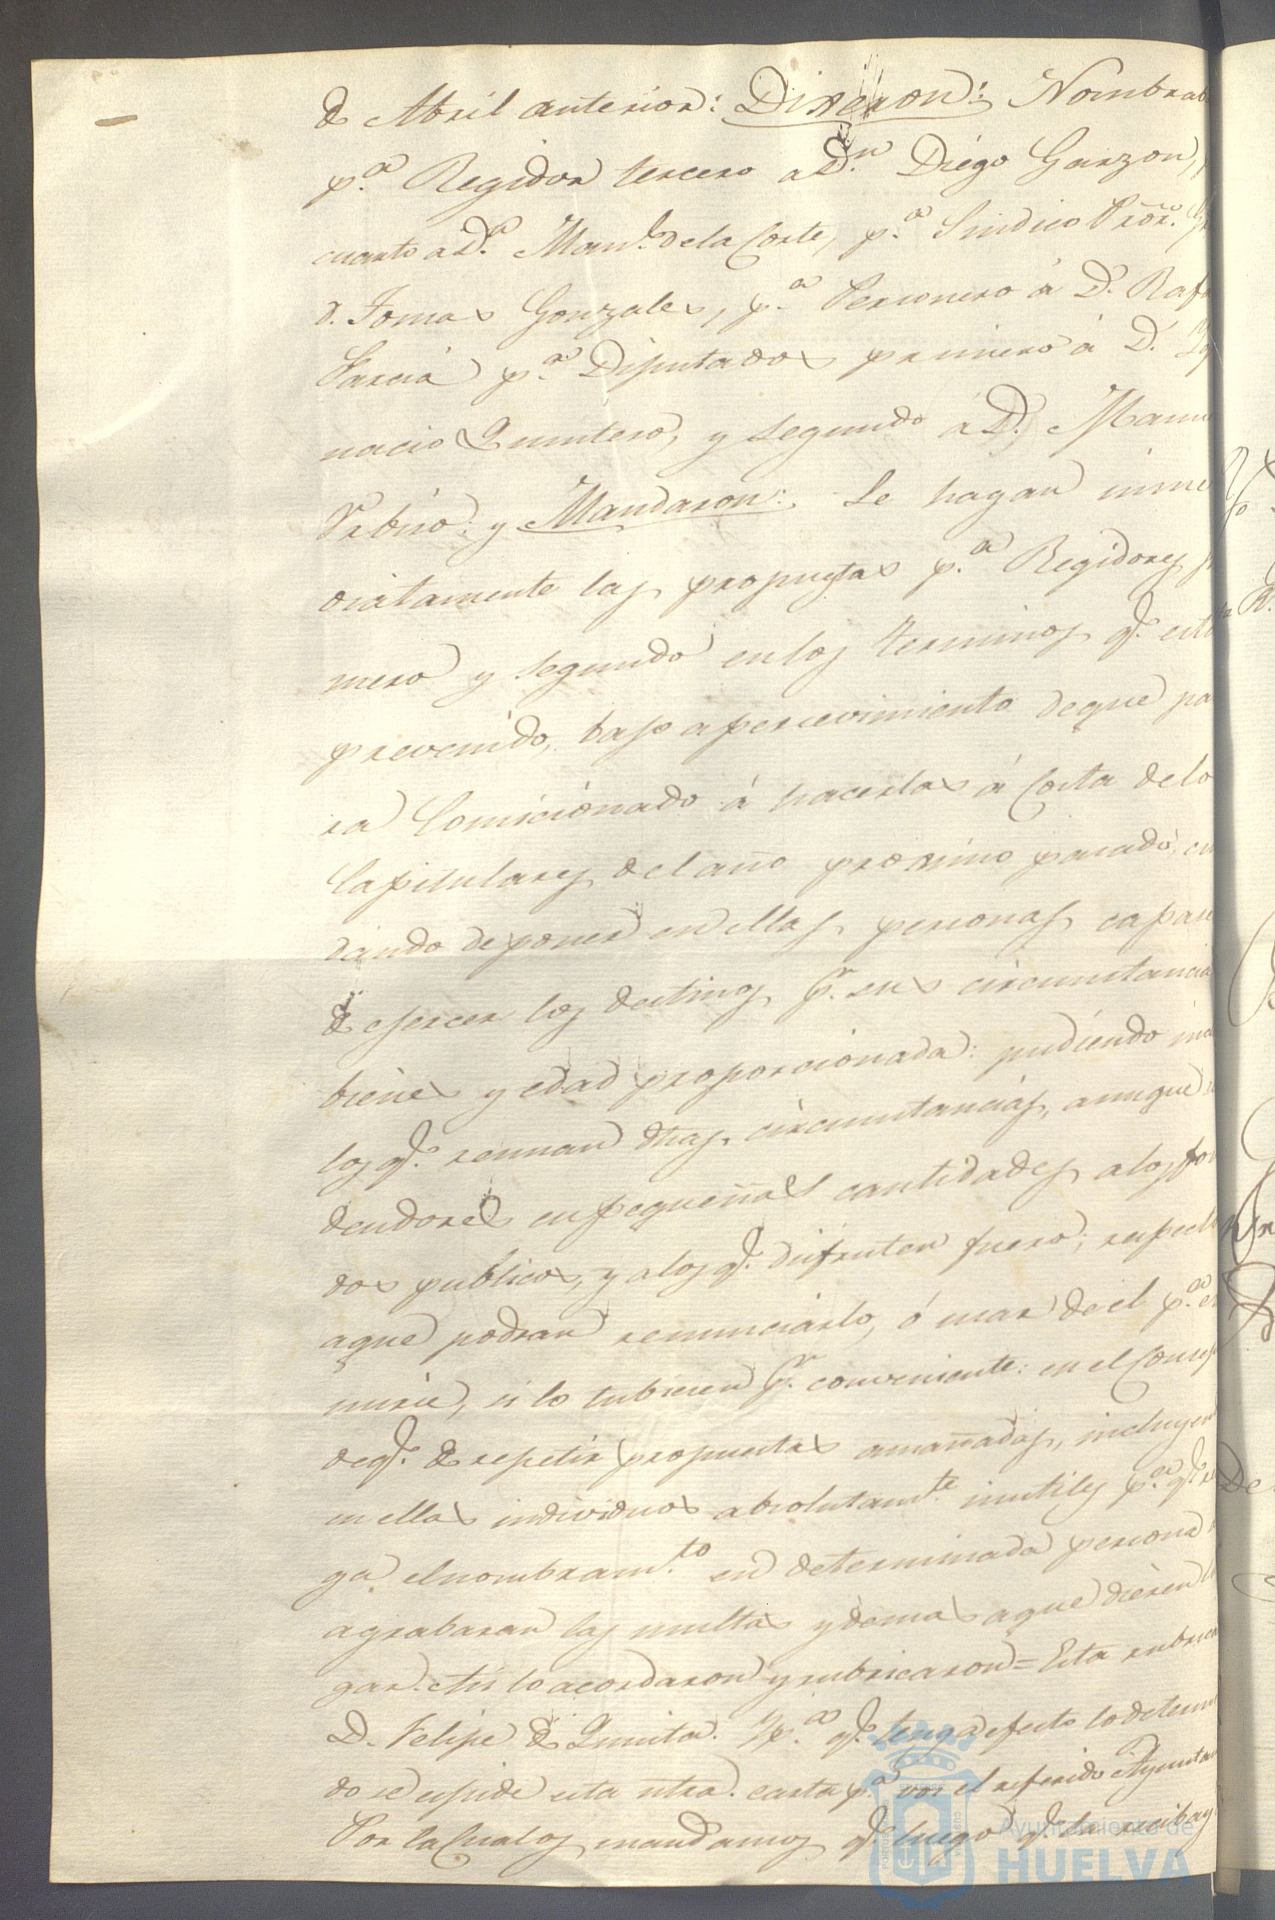 de Abril anterior: Dixeron: Nombrab
p.ª Regidor tercero a D.n Diego Garzon,
cuarto a D.n Man.l de la Corte, p.ª Sindico Pror.
d. Tomas Gonzales, p.ª Personero á D. Rafa
Garcia p.ª Diputados primero á D. Yg
nacio Quintero, y segundo á D. Manu
Urbino: y Mandaron: Se hagan inme
diatamente las propuestas p.ª Regidores
mero y segundo en los terminos q.e esta
prevenido, bajo apercevimiento de que pa
ra Comicionado á hacerlas á Costa de lo
Capitulares del año proximo pasado, cu
dando de poner en ellas personas capaces
de ejercer los destinos p.r sus circunstancia
bienes y edad proporcionada: pudiendo in
los q.e reunan dhas. circunstancias, aunque
deudores en pequeñas cantidades a los fon
dos publicos, y a los q.e disfruten fuero, respecto
a que podran renunciarlo, ó usar de el p.ª ex
mirse, si lo tubiesen p.r conveniente: en el Concep
de q.e de repetir propuestas amañadas, incluyen
en ellas individuos absolutam.te inutiles p.ª q.e
ga el nombram.to en determinada persona
agrabaran las multas y demas a que dieren lu
gar. Asi lo acordaron y rubricaron = Esta rubrica
D. Felipe de Quinta. Y p.ª q.e tenga efecto lo determ
do se espide esta ntra. carta p.ª vos el referido Ayuntam
Por la Cual os mandamos q.e luego q.e la recibays
Ayuntamiento de
HUELVA